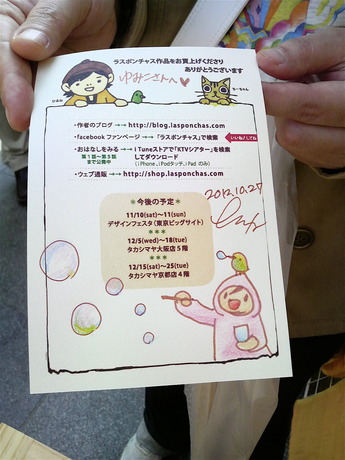 ラスポンチャス作品をお買上げくださり
ありがとうございます
ゆみこさんへ♥
ひるね
ちーちゃん
・作者のブログ →→ http://blog.lasponchas.com
・facebook ファンページ →→「ラスポンチャス」で検索
いいね!してね
・おはなしをみる →→ iTuneストアで「KTVシアター」を検索
第1話〜第5話
まで公開中
してダウンロード
(iPhone、iPodタッチ、iPad のみ)
・ウェブ通販 →→ http://shop.lasponchas.com
2012.10.27
＊今後の予定＊
11/10(sat)〜11(sun)
デザインフェスタ(東京ビッグサイト)
＊＊＊
12/5(wed)〜18(tue)
タカシマヤ大阪店5階
＊＊＊
12/15(sat)〜25(tue)
タカシマヤ京都店4階